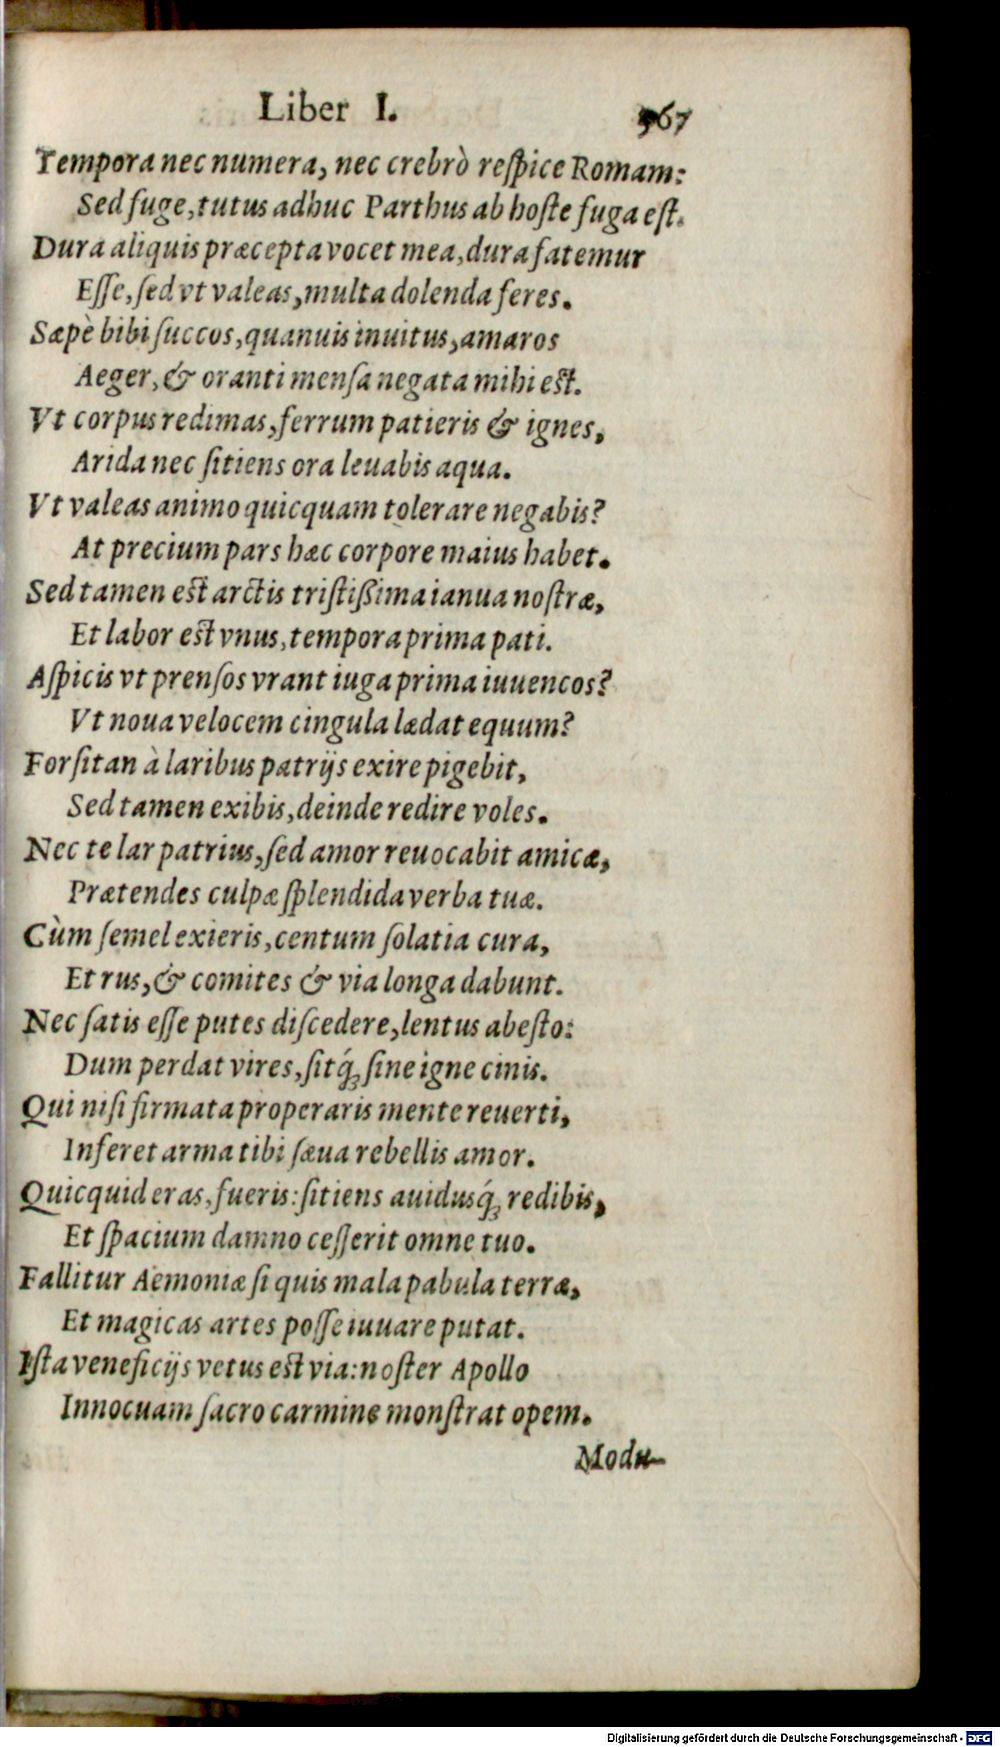 Liber I. 567
Tempora nec numera, nec crebrò reſpice Romam:
Sed fuge, tutus adhuc Parthus ab hoſte fuga eſt.
Dura aliquis præcepta vocet mea, dura fatemur
Eſſe, ſed vt valeas, multa dolenda feres.
Sæpè bibi ſuccos, quanuis inuitus, amaros
Aeger, & oranti menſa negata mihi eſt.
Vt corpus redimas, ferrum patieris & ignes,
Arida nec ſitiens ora leuabis aqua.
Vt valeas animo quicquam tolerare negabis?
At precium pars hæc corpore maius habet.
Sed tamen eſt arctis triſtißima ianua noſtræ,
Et labor eſt vnus, tempora prima pati.
Aſpicis vt prenſos vrant iuga prima iuuencos?
Vt noua velocem cingula lædat equum?
Forſitan à laribus patrijs exire pigebit,
Sed tamen exibis, deinde redire voles.
Nec te lar patrius, ſed amor reuocabit amicæ,
Prætendes culpæ ſplendida verba tuæ.
Cùm ſemel exieris, centum ſolatia cura,
Et rus, & comites & via longa dabunt.
Nec ſatis eſſe putes diſcedere, lentus abeſto:
Dum perdat vires, ſitq́; ſine igne cinis.
Qui niſi firmata properaris mente reuerti,
Inferet arma tibi ſæua rebellis amor.
Quicquid eras, fueris: ſitiens auidusq́; redibis,
Et ſpacium damno ceſſerit omne tuo.
Fallitur Aemoniæ ſi quis mala pabula terræ,
Et magicas artes poſſe iuuare putat.
Iſta veneficijs vetus eſt via: noſter Apollo
Innocuam ſacro carmine monſtrat opem.
Modu-
Digitalisierung gefördert durch die Deutsche Forschungsgemeinschaft - DFG